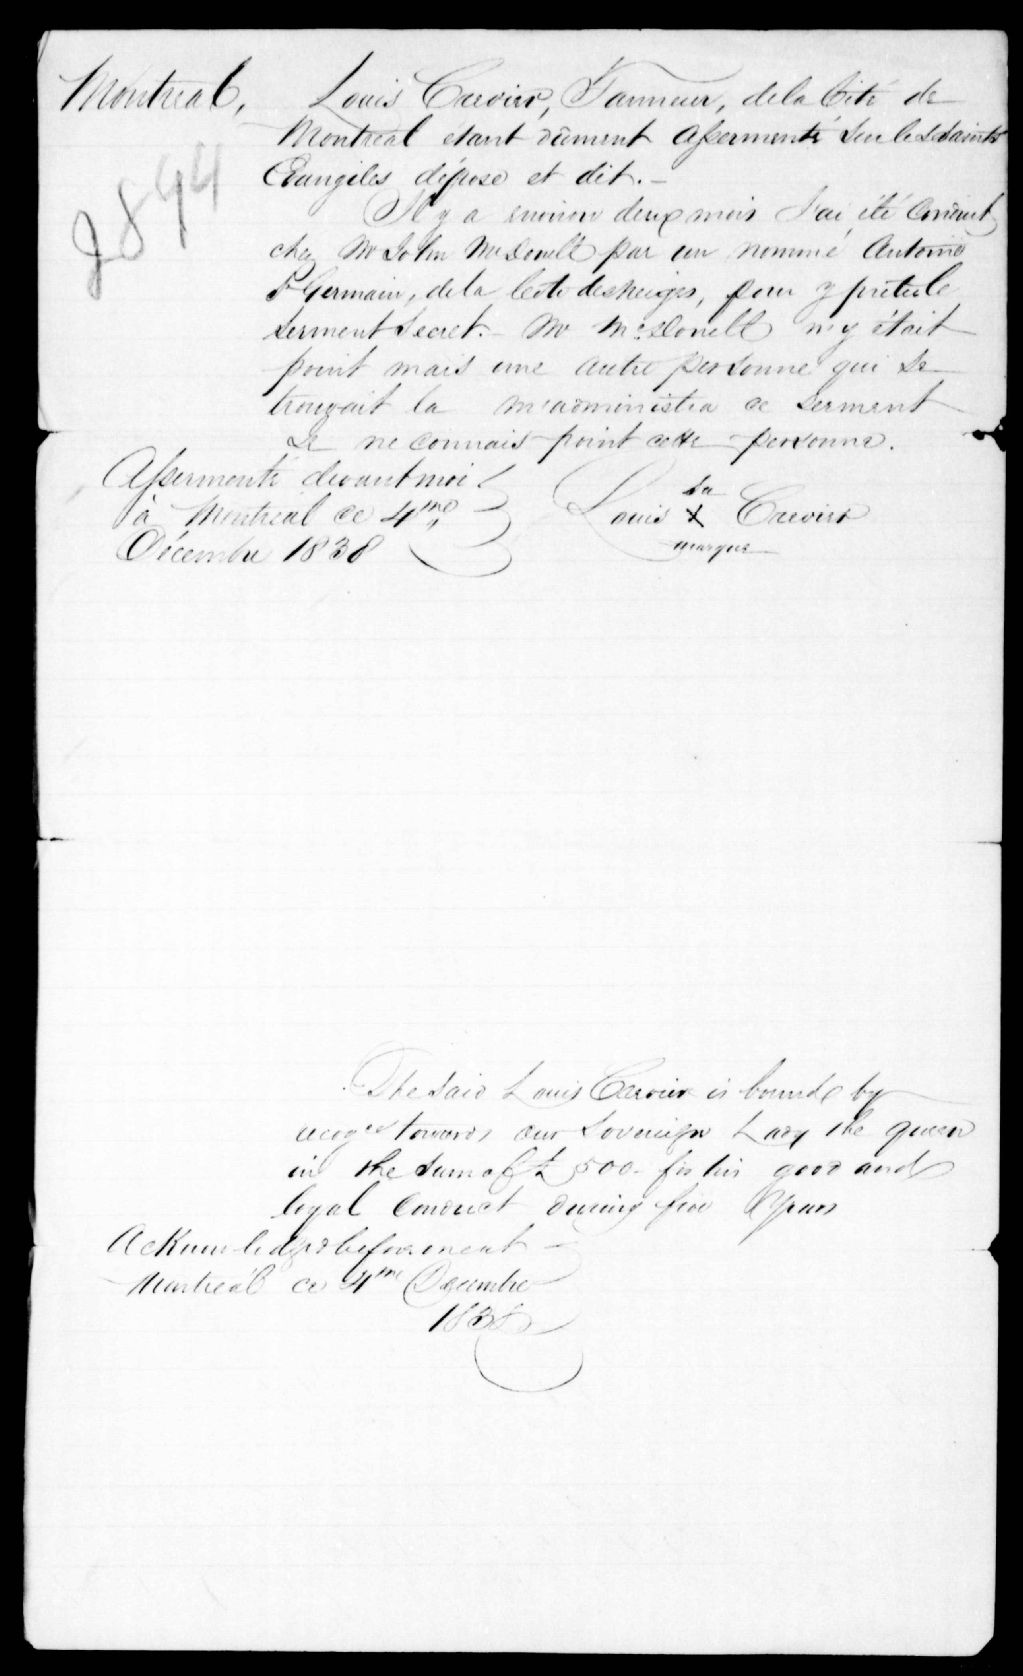 Montreal, Louis Carvier, Tanneur, de la Cité de
Montreal étant dûment assermenté sur les saints
Evangiles dépose et dit.—
Il y a environ deux mois J'ai été conduit
chez Mr John McDonell par un nommé Antoine
St Germain, de la Cote des Neiges, pour y prêter le
Serment Secret.— Mr McDonell n'y était
point mais une autre personne qui se
trouvait la m'administra ce serment
Je ne connais point cette personne.
Assermenté devant moi
à Montréal ce 4me
Décembre 1838
sa
Louis X Carvier
marque
2894
The said Louis Carvier is bound by
recogce towards our Sovereign Lady the queen
in the sum of £ 500- for his good and
loyal conduct during five Years
Acknowledged before me at
Montreal ce 4me Decembre
1838